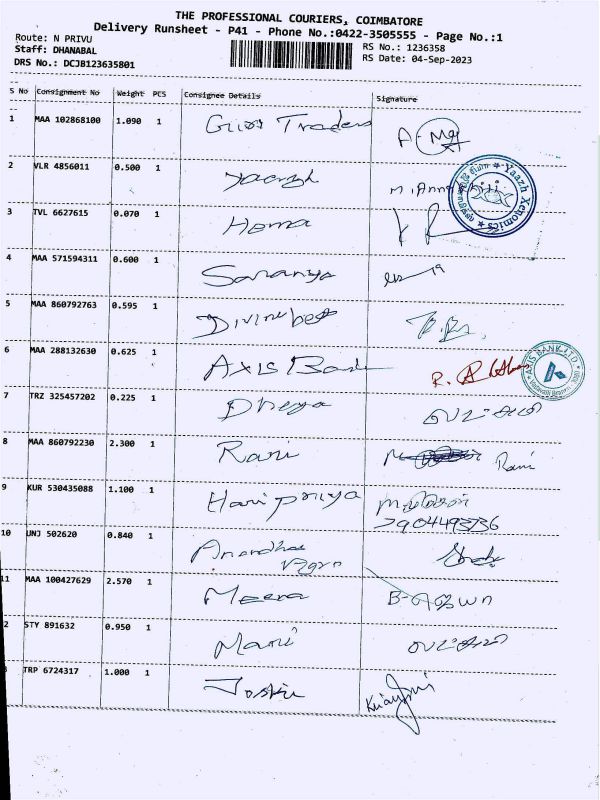 THE PROFESSIONAL COURIERS, COIMBATORE
Delivery Runsheet - P41 - Phone No.:0422-3505555 - Page No.:1
Route: N PRIVU
RS No.: 1236358
Staff: DHANABAL
RS Date: 04-Sep-2023
DRS No.: DCJB123635801
S No Consignment No Weight PCS Consignee Details Signature
1 MAA 102868100 1.090 1 Traders
2 VLR 4856011 0.500 1 Yaazh
3 TVL 6627615 0.070 1 Hema
4 MAA 571594311 0.600 1 Saranya
5 MAA 860792763 0.595 1 Divine best
6 MAA 288132630 0.625 1 Axis Bank
7 TRZ 325457202 0.225 1 Dheya
8 MAA 860792230 2.300 1 Rani Rani
9 KUR 530435088 1.100 1 Haripriya
7904493736
10 UNJ 502620 0.840 1
11 MAA 100427629 2.570 1 Meera
2 STY 891632 0.950 1 Mani
TRP 6724317 1.000 1
Yaazh Xenomics
AXIS BANK LTD